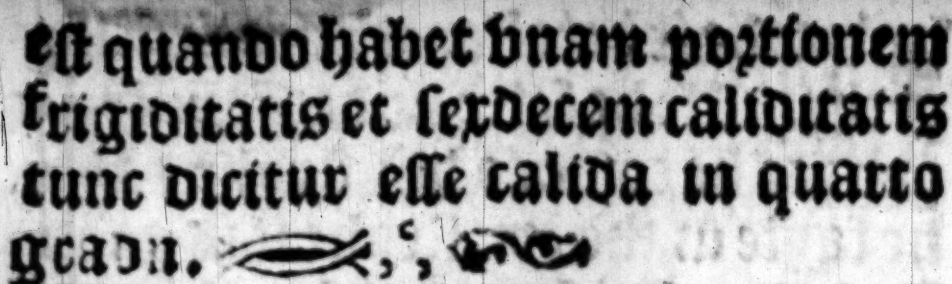 est quando habet vnam portionem
frigiditatis et sexdecem caliditatis
tunc dicitur esse calida in quarto
gradu.